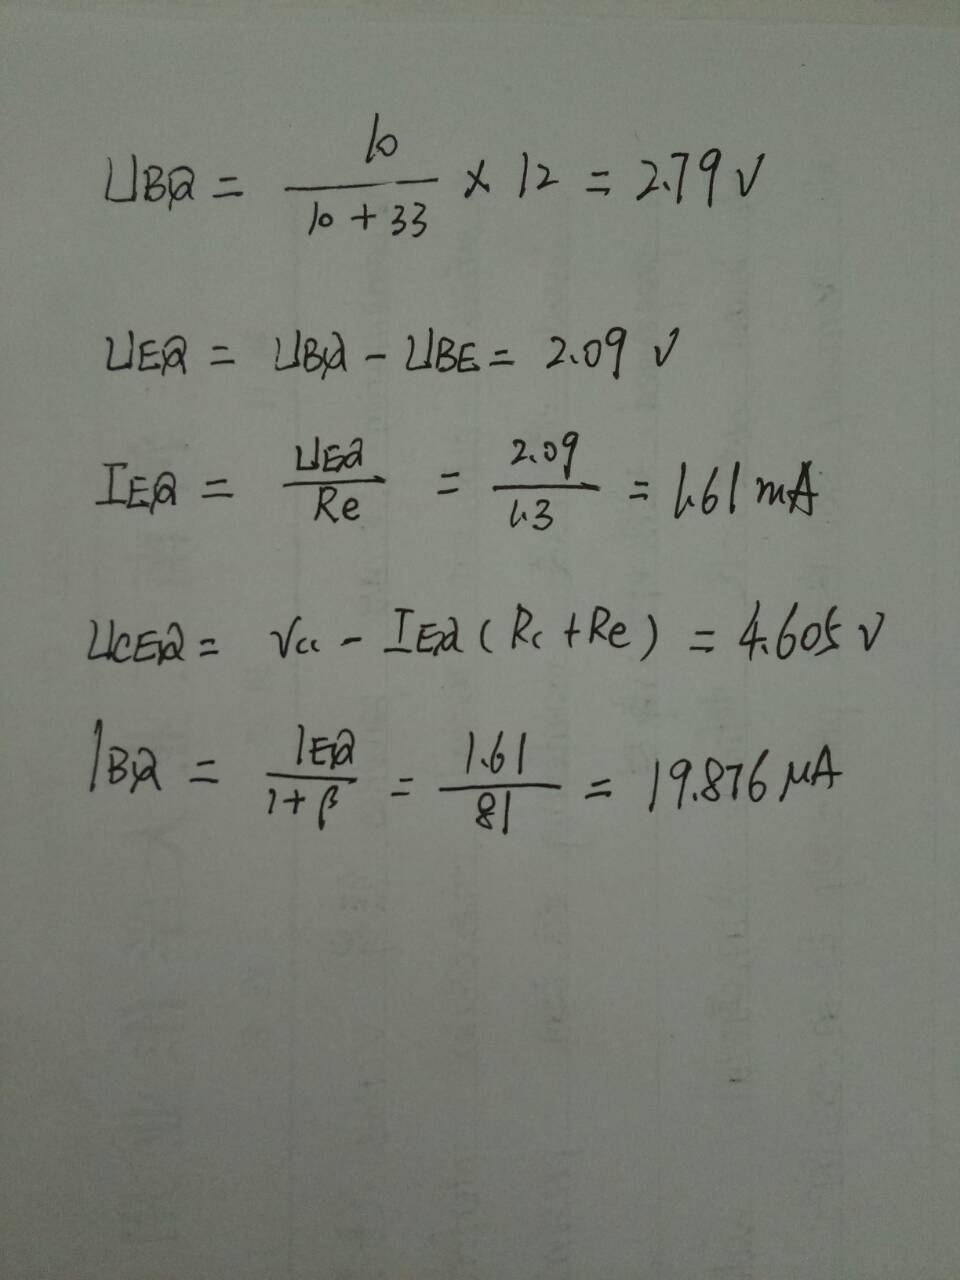 UBQ = 10 / (10 + 33) × 12 = 2.79 V
UEQ = UBQ - UBE = 2.09 V
IEQ = UEQ / Re = 2.09 / 1.3 = 1.61 mA
UCEQ = Vcc - IEQ ( Rc + Re ) = 4.605 V
IBQ = IEQ / (1+β) = 1.61 / 81 = 19.876 μA